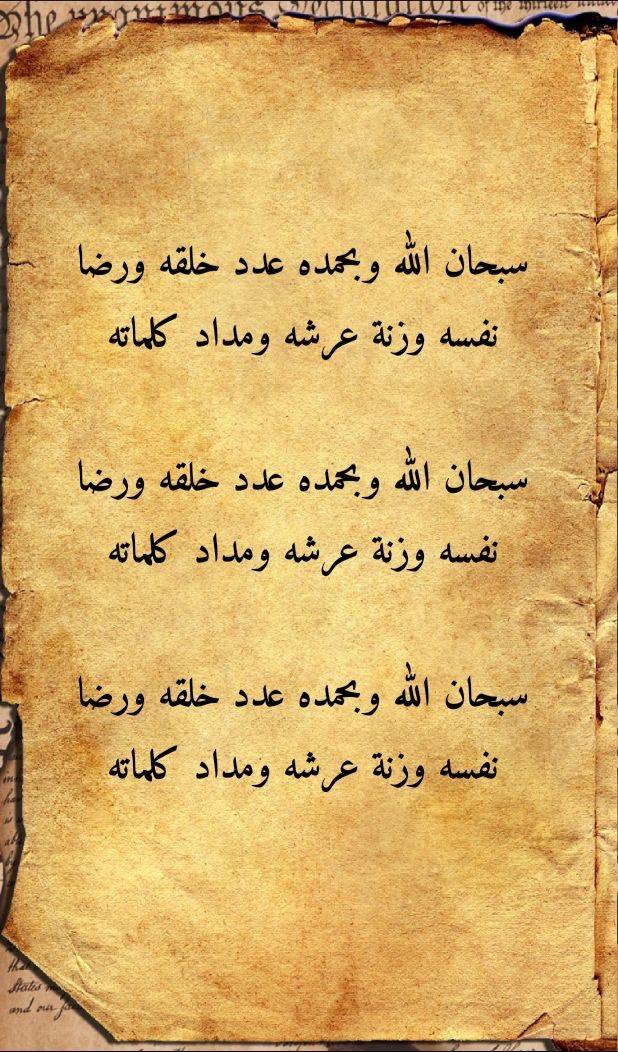 The unanimous Declaration of the thirteen united
سبحان الله وبحمده عدد خلقه ورضا
نفسه وزنة عرشه ومداد كلماته
سبحان الله وبحمده عدد خلقه ورضا
نفسه وزنة عرشه ومداد كلماته
سبحان الله وبحمده عدد خلقه ورضا
نفسه وزنة عرشه ومداد كلماته
that
States
and our